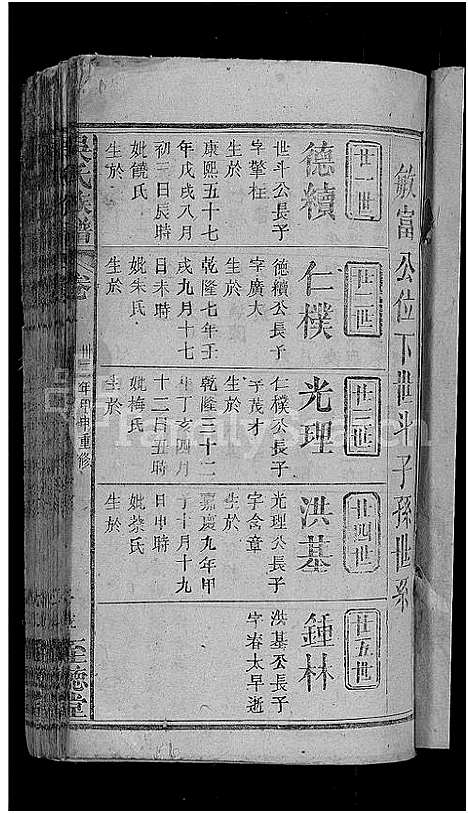 敏富公位下世斗子孫世系
廿一世
德續
世斗公長子
字擎柱
生於
康熙五十七
年戊戌八月
初三日辰時
妣饒氏
生於
廿二世
仁樸
德續公長子
字廣大
生於
乾隆七年壬
戌九月十七
日未時
妣朱氏
生於
廿三世
光理
仁樸公長子
字茂才
生於
乾隆三十二
年丁亥四月
十二日丑時
妣梅氏
生於
廿四世
洪基
光理公長子
字含章
生於
嘉慶九年甲
子十月十九
日申時
妣蔡氏
生於
廿五世
鍾林
洪基公長子
字春太早逝
吳氏族譜
卷
年甲申重修
至德堂
FamilySearch